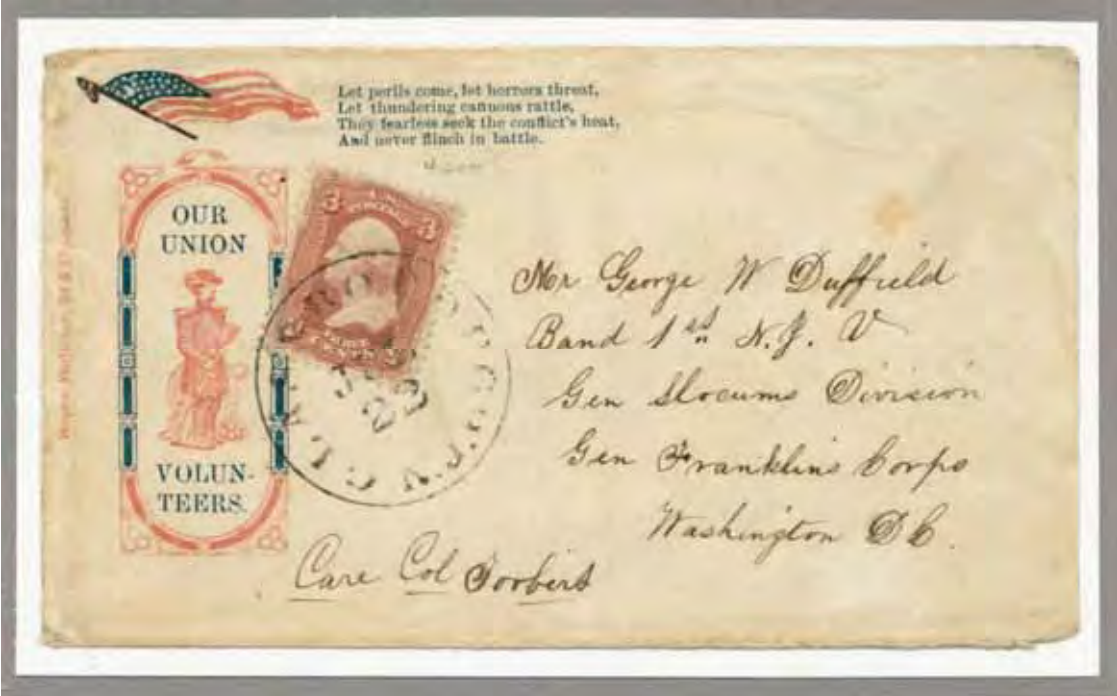 Let perils come, let horrors threat,
Let thundering cannons rattle,
They fearless seek the conflict's heat,
And never flinch in battle.
OUR
UNION
VOLUN-
TEERS.
3 3
JUL
23
Mr George W Duffield
Band 1st N.J. V
Gen Slocums Division
Gen Franklins Corps
Washington DC.
Care Col Torbert